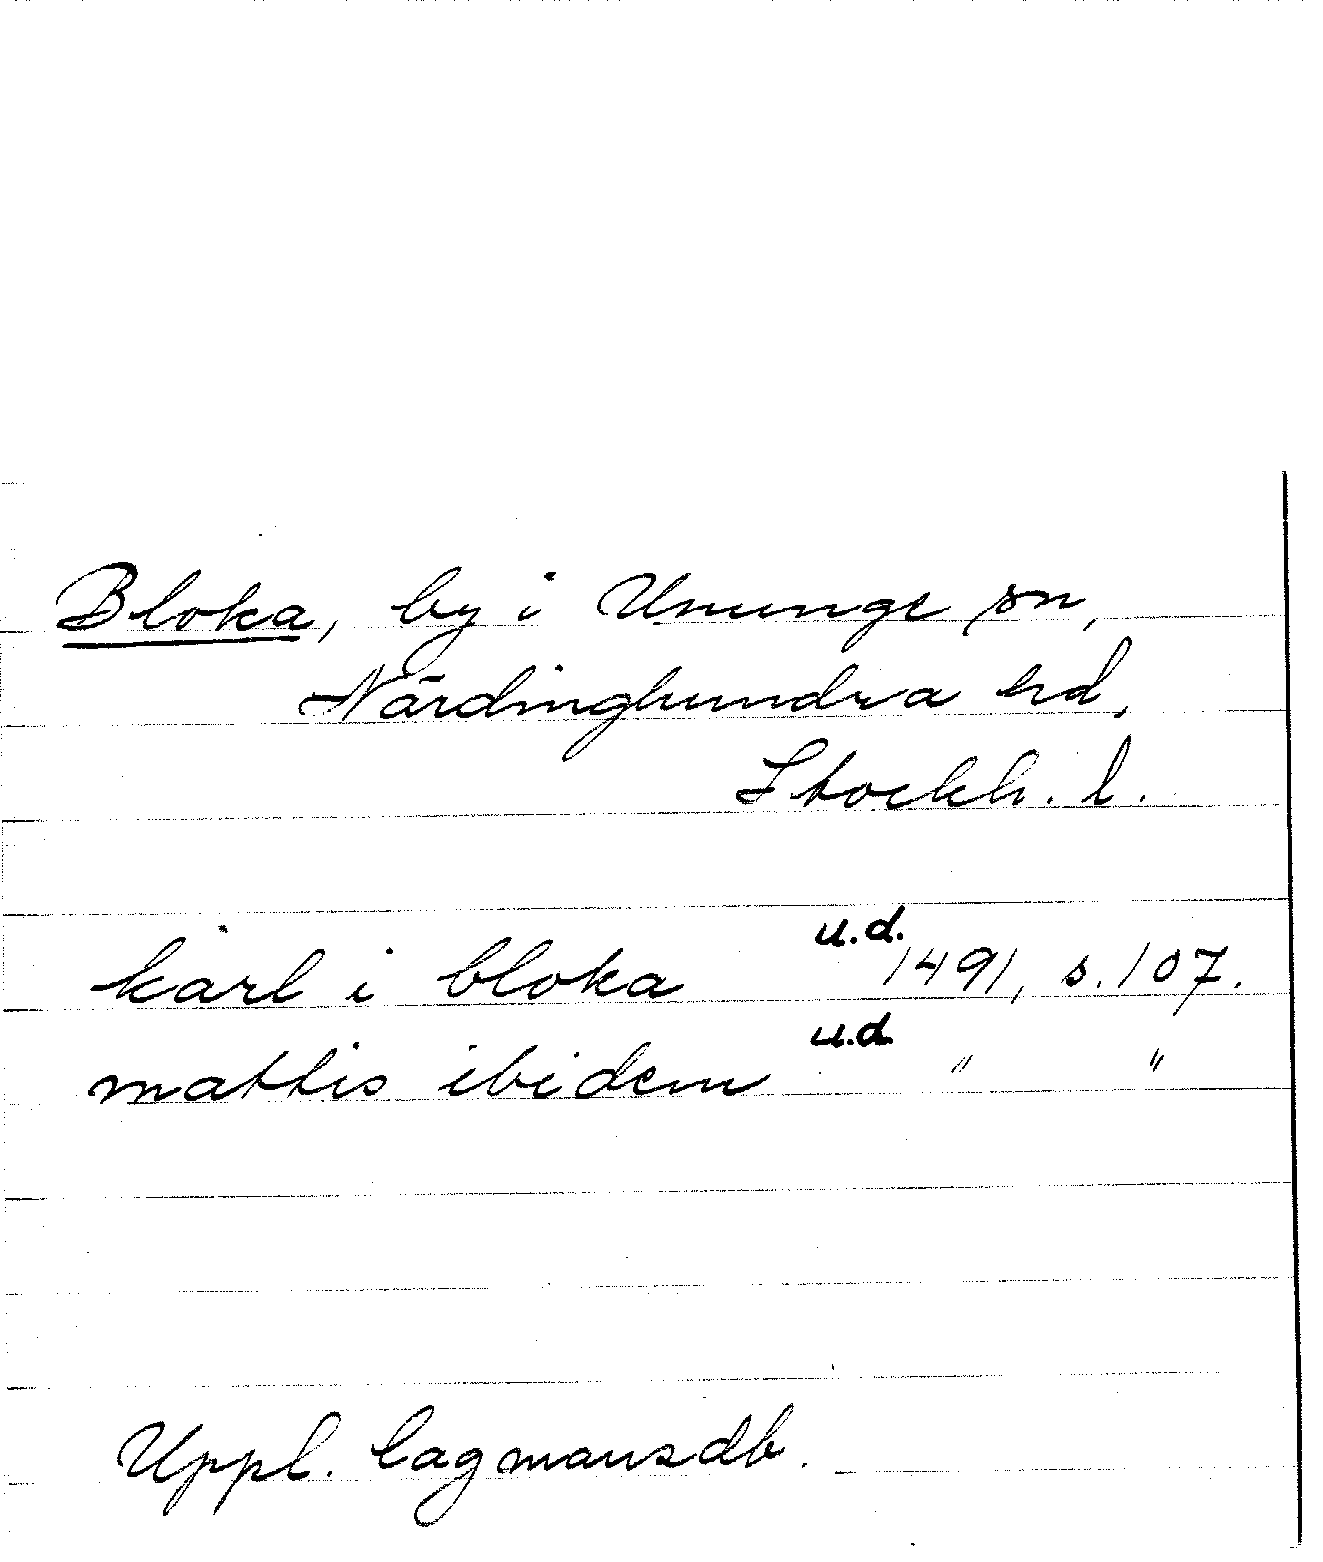 Bloka, by i Ununge sn,
Närdinghundra hd,
Stockh. l.
karl i bloka u.d. 1491, s. 107.
mattis ibidem u.d. " "
Uppl. lagmansdb.